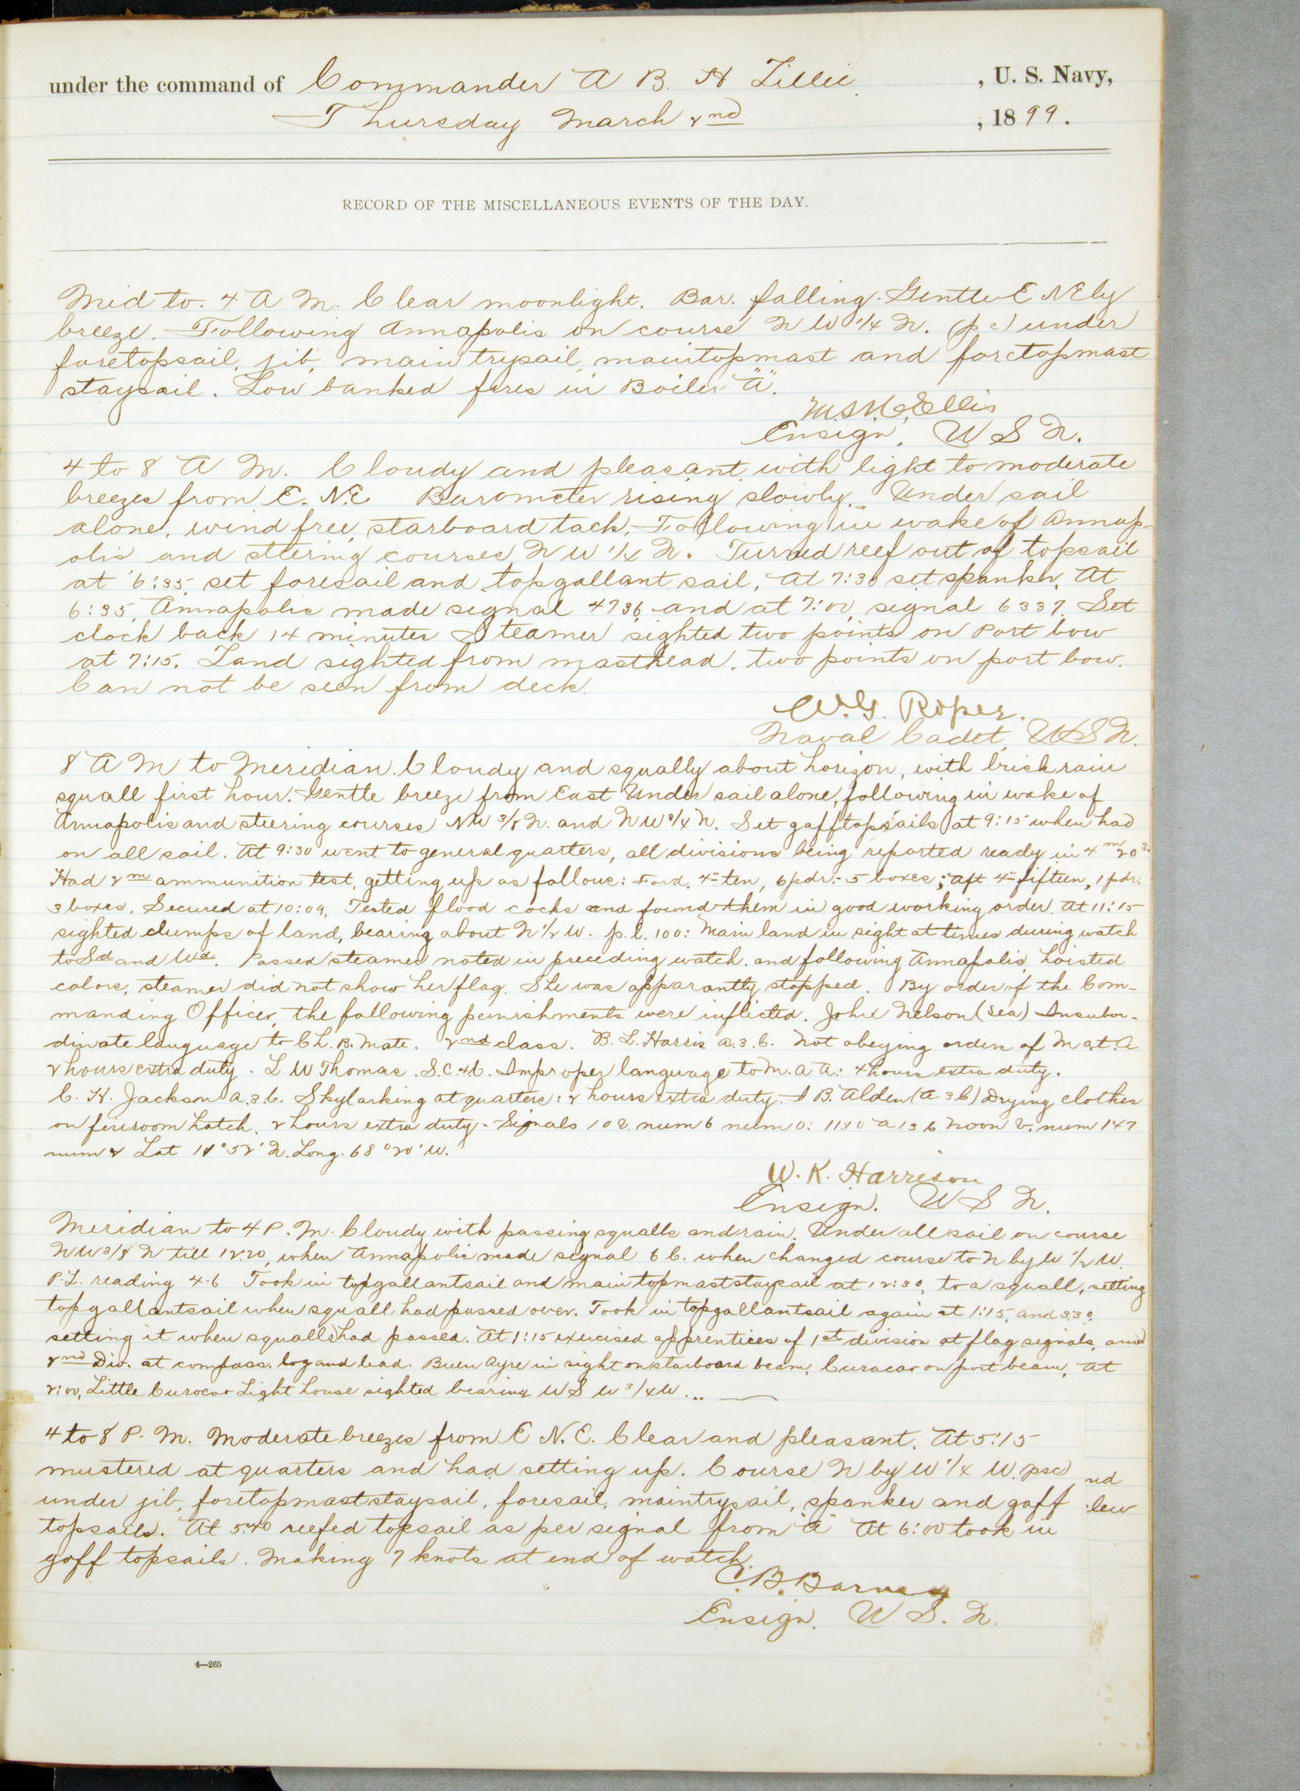 under the command of Commander A B. H Lillie, U. S. Navy,
Thursday March 2nd, 1899.
RECORD OF THE MISCELLANEOUS EVENTS OF THE DAY.
Mid to 4 A M. Clear moonlight. Bar. falling. Gentle E NEly
breeze. Following Annapolis on course N W 1/4 N. (p c) under
foretopsail, jib, main trysail, maintopmast and foretopmast
staysail. Low banked fires in Boiler "A".
Ellis
Ensign, U S N.
4 to 8 A M. Cloudy and pleasant with light to moderate
breezes from E. N.E Barometer rising slowly. Under sail
alone, wind free, starboard tack. Following in wake of Annap-
olis and steering courses N W 1/4 N. Turned reef out of topsail
at 6:35, set foresail and topgallant sail. At 7:30 set spanker. At
6:35, Annapolis made signal 4736 and at 7:00, signal 6337. Set
clock back 14 minutes Steamer sighted two points on Port bow
at 7:15. Land sighted from masthead, two points on port bow.
Can not be seen from deck.
W.G. Roper.
Naval Cadet, U.S N.
8 A M to Meridian. Cloudy and squally about horizon, with brisk rain
squall first hour. Gentle breeze from East Under sail alone, following in wake of
Annapolis and steering courses NW 3/8 N. and N W 1/4 N. Set gafftopsails at 9:15 when had
on all sail. At 9:30 went to general quarters, all divisions being reported ready in 4m 20s.
Had 2m ammunition test, getting up as follows: Ford. 4" ten, 6 pdr: 5 boxes; aft 4" fifteen, 1 pdr.
3 boxes. Secured at 10:09. Tested flood cocks and found them in good working order. At 11:15
sighted clumps of land, bearing about N 1/2 W. p.l. 100: Main land in sight at times during watch
to Sd and Wd. Passed steamer noted in preceding watch, and following Annapolis, hoisted
colors, steamer did not show her flag. She was apparantly stopped. By order of the Com-
manding Officer, the following punishments were inflicted. John Nelson (Sea) Insubor-
dinate language to Ch. B. Mate. 2nd class. B. L. Harris a.3.c. Not obeying orders of M at A
2 hours extra duty. L W Thomas. S.C. 4 C. Improper language to M. A A: 4 hours extra duty.
C. H. Jackson a.3c. Skylarking at quarters: 2 hours extra duty. I B. Alden (a 3 c) Drying clothes
on fireroom hatch, 2 hours extra duty. Signals 102 num 6 num 0: 11:10 a 136 Noon num 147
num 2 Lat 11° 52' N. Long. 68° 20' W.
W. K. Harrison
Ensign. U S N.
Meridian to 4 P. M. Cloudy with passing squalls and rain. Under all sail on course
N W 3/8 N till 12:20, when Annapolis made signal 6 C. when changed course to N by W 1/2 W.
P.L. reading 4.6 Took in topgallantsail and main topmast staysail at 12:30, to a squall, setting
topgallantsail when squall had passed over. Took in topgallantsail again at 1:15, and 3:30
setting it when squalls had passed. At 1:15 exercised apprentices of 1st division at flag signals, and
2nd Div. at compass, log and lead. Buen Ayre in sight on starboard beam, Curacao on port beam, At
2:00, Little Curocao Light house sighted bearing W S W 3/4 W.
4 to 8 P. M. Moderate breezes from E N. E. Clear and pleasant. At 5:15
mustered at quarters and had setting up. Course N by W 1/4 W. psc
under jib, foretopmast staysail, foresail, maintrysail, spanker and gaff
topsails. At 5:40 reefed topsail as per signal from "A" At 6:00 took in
gaff topsails. Making 7 knots at end of watch.
C. B. Barnes
Ensign. U S. N.
4—265